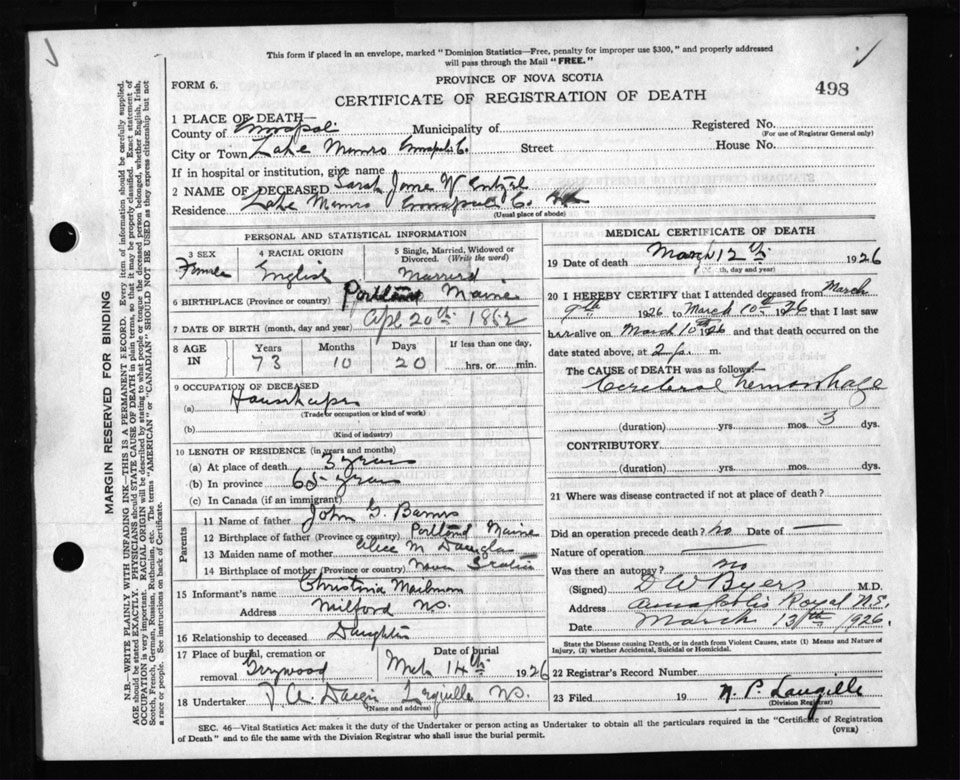 This form if placed in an envelope, marked "Dominion Statistics—Free, penalty for improper use $300," and properly addressed
will pass through the Mail "FREE."
FORM 6.
PROVINCE OF NOVA SCOTIA
CERTIFICATE OF REGISTRATION OF DEATH
498
1 PLACE OF DEATH—
County of Municipality of Registered No.
(For use of Registrar General only)
City or Town Lake Munro Street House No.
If in hospital or institution, give name
2 NAME OF DECEASED Sarah Jane Wentzel
Residence Lake Munro
(Usual place of abode)
PERSONAL AND STATISTICAL INFORMATION
3 SEX Female
4 RACIAL ORIGIN English
5 Single, Married, Widowed or Divorced (Write the word) Married
6 BIRTHPLACE (Province or country) Portland Maine
7 DATE OF BIRTH (month, day and year) Apl 20th 1852
8 AGE IN
Years Months Days If less than one day,
73 10 20 hrs. or min.
9 OCCUPATION OF DECEASED
(a) Housekeeper
(Trade or occupation or kind of work)
(b)
(Kind of industry)
10 LENGTH OF RESIDENCE (in years and months)
(a) At place of death 3 years
(b) In province 65 years
(c) In Canada (if an immigrant)
Parents
11 Name of father John G. Barnes
12 Birthplace of father (Province or country) Portland Maine
13 Maiden name of mother Alice M Douglas
14 Birthplace of mother (Province or country) Nova Scotia
15 Informant's name Christina Mailman
Address Milford NS.
16 Relationship to deceased Daughter
17 Place of burial, cremation or removal Greywood
Date of burial Mch 14th 1926
18 Undertaker Lequille NS.
(Name and address)
MEDICAL CERTIFICATE OF DEATH
19 Date of death March 12th 1926
(Month, day and year)
20 I HEREBY CERTIFY that I attended deceased from March
9th 1926 to March 10th 1926 that I last saw
her alive on March 10th 1926 and that death occurred on the
date stated above, at 2 m.
The CAUSE of DEATH was as follows:—
Cerebral hemorrhage
(duration) yrs. mos. 3 dys.
CONTRIBUTORY
(duration) yrs. mos. dys.
21 Where was disease contracted if not at place of death?
Did an operation precede death? no Date of —
Nature of operation —
Was there an autopsy? no
(Signed) D W Byers M.D.
Address Annapolis Royal N.S.
Date March 13th 1926.
State the Disease causing Death, or in death from Violent Causes, state (1) Means and Nature of
Injury, (2) whether Accidental, Suicidal or Homicidal.
22 Registrar's Record Number
23 Filed 19 N. P. Langille
(Division Registrar)
SEC. 46—Vital Statistics Act makes it the duty of the Undertaker or person acting as Undertaker to obtain all the particulars required in the "Certificate of Registration
of Death" and to file the same with the Division Registrar who shall issue the burial permit.
(OVER)
MARGIN RESERVED FOR BINDING
N.B.—WRITE PLAINLY WITH UNFADING INK—THIS IS A PERMANENT RECORD. Every item of information should be carefully supplied.
AGE should be stated EXACTLY. PHYSICIANS should STATE CAUSE OF DEATH in plain terms, so that it may be properly classified. Exact statement of
OCCUPATION is very important. RACIAL ORIGIN will be described by stating to what people or tongue the deceased person belonged, whether English, Irish,
Scotch, French, German, Russian, Ruthenian, etc. The terms "AMERICAN" or "CANADIAN" SHOULD NOT BE USED as they express citizenship but not
a race or people. See instructions on back of Certificate.